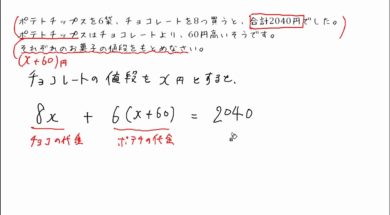 ポテトチップスを6袋、チョコレートを8つ買うと、合計2040円でした。
ポテトチップスはチョコレートより、60円高いそうです。
それぞれのお菓子の値段をもとめなさい。
(x+60)円
チョコレートの値段を x 円とすると、
8x + 6(x+60) = 2040
チョコの代金 ポテチの代金